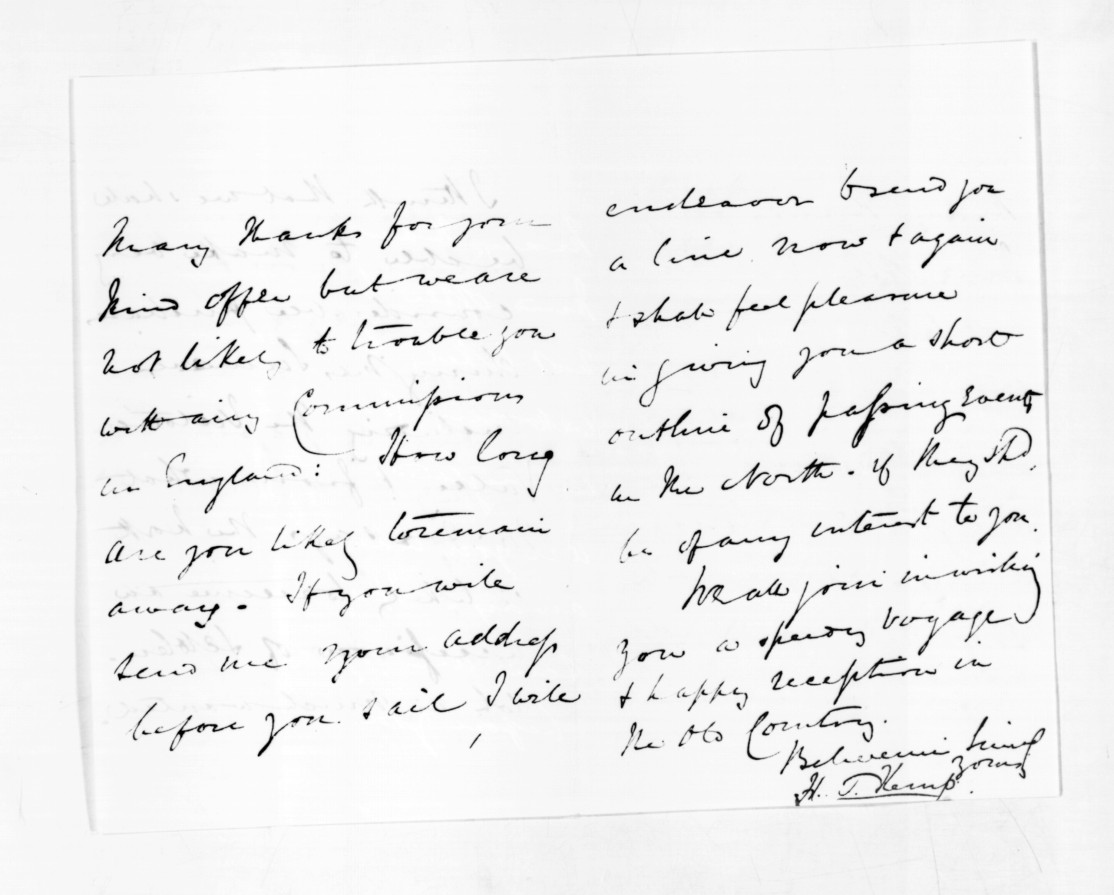 Many thanks for your
kind offer but we are
not likely to trouble you
with any Commissions
in England: How long
are you likely to remain
away. If you will
send me your address
before you sail, I will
endeavor to send you
a line now & again
& shall feel pleasure
in giving you a short
outline of passing Events
in the North. if they shd.
be of any interest to you.
We all join in wishing
you a speedy voyage
& happy reception in
the Old Country.
Believe me Sincly
yours
H. T. Kemp.